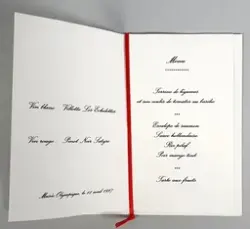 Vin blanc Villette Les Echelettes
Vin rouge Pinot Noir Satyre
Musée Olympique, le 12 avril 1997
Menu
**********
Terrine de légumes
et son coulis de tomates au basilic
***
Enveloppe de saumon
Sauce hollandaise
Riz pilaf
Pois mange-tout
***
Tarte aux fruits